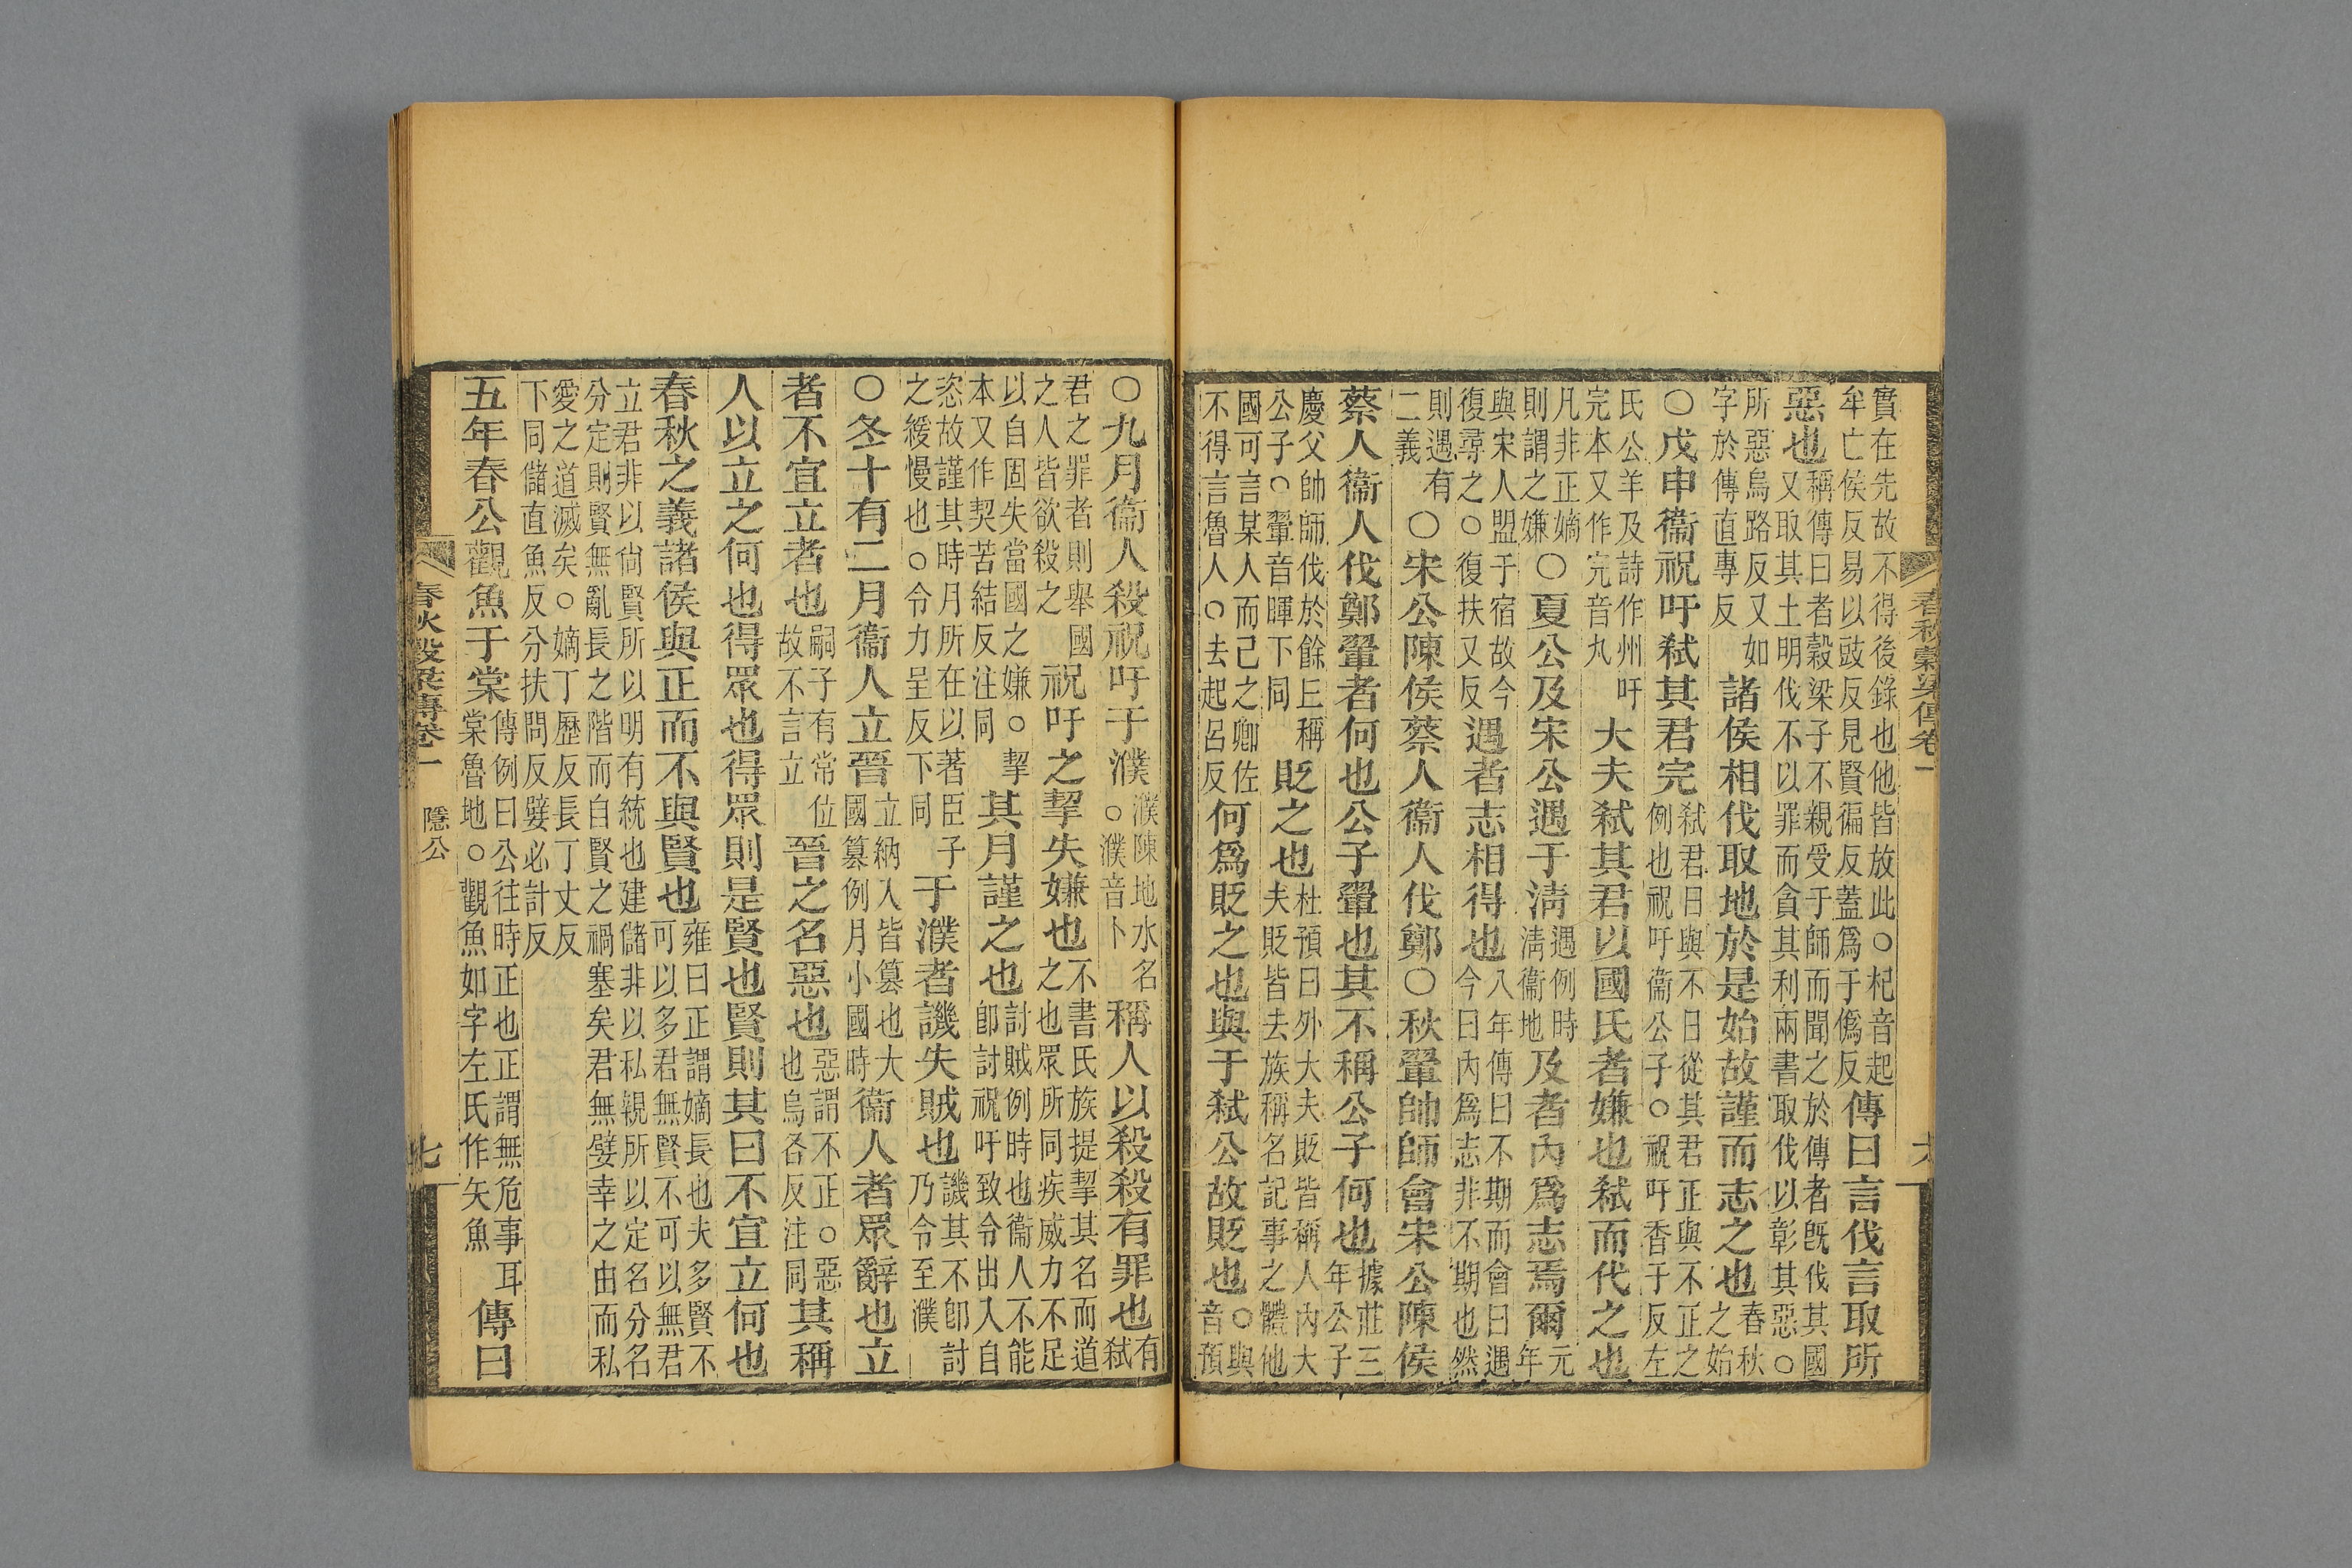 春秋穀梁傳卷一
六
實在先故不得後錄也他皆放此○杞音起
牟亡侯反易以豉反見賢徧反蓋爲于僞反
傳曰言伐言取所
惡也
稱傳曰者穀梁子不親受于師而聞之於傳者旣伐其國
又取其土明伐不以罪而貪其利兩書取伐以彰其惡○
所惡烏路反又如
字於傳直專反
諸侯相伐取地於是始故謹而志之也
春秋
之始
○戊申衞祝吁弑其君完
弑君日與不日從其君正與不正之
例也祝吁衞公子○祝吁香于反左
氏公羊及詩作州吁
完本又作完音丸
大夫弑其君以國氏者嫌也弑而代之也
凡非正嫡
則謂之嫌
○夏公及宋公遇于淸
遇例時
淸衞地
及者內爲志焉爾
元
年
與宋人盟于宿故今
復尋之○復扶又反
遇者志相得也
八年傳曰不期而會曰遇
今曰內爲志非不期也然
則遇有
二義
○宋公陳侯蔡人衞人伐鄭○秋翬帥師會宋公陳侯
蔡人衞人伐鄭翬者何也公子翬也其不稱公子何也
據莊三
年公子
慶父帥師伐於餘丘稱
公子○翬音暉下同
貶之也
杜預曰外大夫貶皆稱人內大
夫貶皆去族稱名記事之體他
國可言某人而己之卿佐
不得言魯人○去起呂反
何爲貶之也與于弑公故貶也
○與
音預
○九月衞人殺祝吁于濮
濮陳地水名
○濮音卜
稱人以殺殺有罪也
有
弑
君之罪者則舉國
之人皆欲殺之
祝吁之挈失嫌也
不書氏族提挈其名而道
之也眾所同疾威力不足
以自固失當國之嫌○挈
本又作契苦結反注同
其月謹之也
討賊例時也衞人不能
卽討祝吁致令出入自
恣故謹其時月所在以著臣子
之緩慢也○令力呈反下同
于濮者譏失賊也
譏其不卽討
乃令至濮
○冬十有二月衞人立晉
立納入皆篡也大
國篡例月小國時
衞人者眾辭也立
者不宜立者也
嗣子有常位
故不言立
晉之名惡也
惡謂不正○惡
也烏各反注同
其稱
人以立之何也得眾也得眾則是賢也賢則其曰不宜立何也
春秋之義諸侯與正而不與賢也
雍曰正謂嫡長也夫多賢不
可以多君無賢不可以無君
立君非以尙賢所以明有統也建儲非以私親所以定名分名
分定則賢無亂長之階而自賢之禍塞矣君無嬖幸之由而私
愛之道滅矣○嫡丁歷反長丁丈反
下同儲直魚反分扶問反嬖必計反
五年春公觀魚于棠
傳例曰公往時正也正謂無危事耳
棠魯地○觀魚如字左氏作矢魚
傳曰
春秋穀梁傳卷一
隱公
七